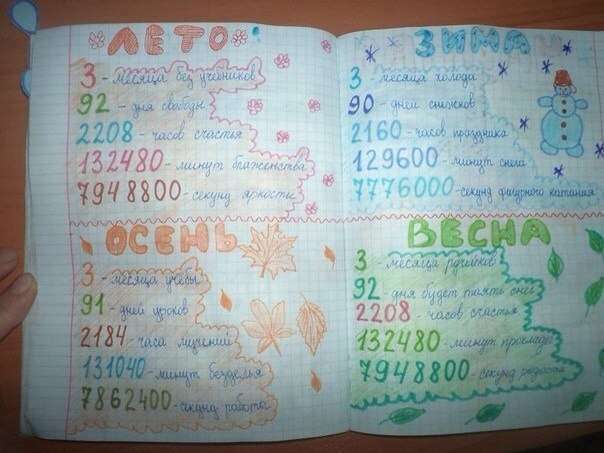 ЛЕТО
3 - месяца без учебников
92 - дня свободы
2208 - часов счастья
132480 - минут блаженства
7948800 - секунд яркости
ЗИМА
3 - месяца холода
90 - дней снежков
2160 - часов праздника
129600 - минут снега
7776000 - секунд фигурного катания
ОСЕНЬ
3 - месяца учёбы
91 - дней уроков
2184 - часа
131040 - минут безделья
7862400 - секунд работы
ВЕСНА
3 месяца ручейков
92 дня будет таять снег
2208 - часов счастья
132480 - минут прохлады
7948800 - секунд радости